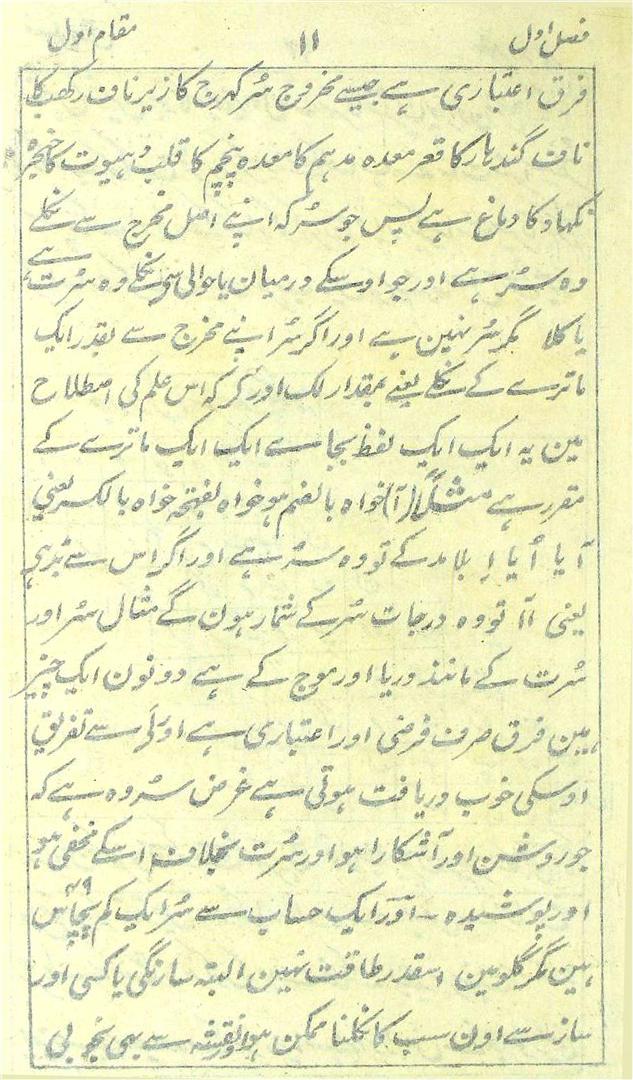 فصل اول ۱۱ مقام اول
فرق اعتباری ہے جیسے مخروج سُر کھرج کا زیر ناف رکھب کا
ناف گندہار کا قعر معدہ مدہم کا معدہ پنچم کا قلب دہیوت کا حنجرہ
نکہاد کا دماغ ہے پس جو سُر کہ اپنے اصل مخرج سے نکلے
وہ سُر ہے اور جو اوسکے درمیان یا حوالی سے نکلے وہ سُرت ہے
یا کلا مگر سُر نہین ہے اور اگر سُر اپنے مخرج سے بقدر ایک
ماترے کے نکلے یعنے بمقدار لک اور گر کہ اس علم کی اصطلاح
مین یہ ایک ایک لفظ بجاے ایک ایک ماترے کے
مقرر ہے مثلاً (آ) خواہ بالضم ہو خواہ بفتحہ خواہ بالکسر یعنی
آ یا اُ یا اِ بلا مد کے تو وہ سُر ہے اور اگر اس سے بڑہی
یعنی آآ تو وہ درجات سُر کے شمار ہون گے مثال سُر اور
سُرت کے مانند دریا اور موج کے ہے دونون ایک چیز
ہین فرق صرف فرضی اور اعتباری ہے اور لَے سے تفریق
اوسکی خوب دریافت ہوتی ہے غرض سُر وہ ہے کہ
جو روشن اور آشکارا ہو اور سُرت بخلاف اسکے مخفی ہو
اور پوشیدہ - اور ایک حساب سے سُر ایک کم پچاس ۴۹
ہین مگر گلو مین اسقدر طاقت نہین البتہ سارنگی یا کسی اور
ساز سے اون سب کا نکلنا ممکن ہو اور نقشہ سے بہی بخوبی